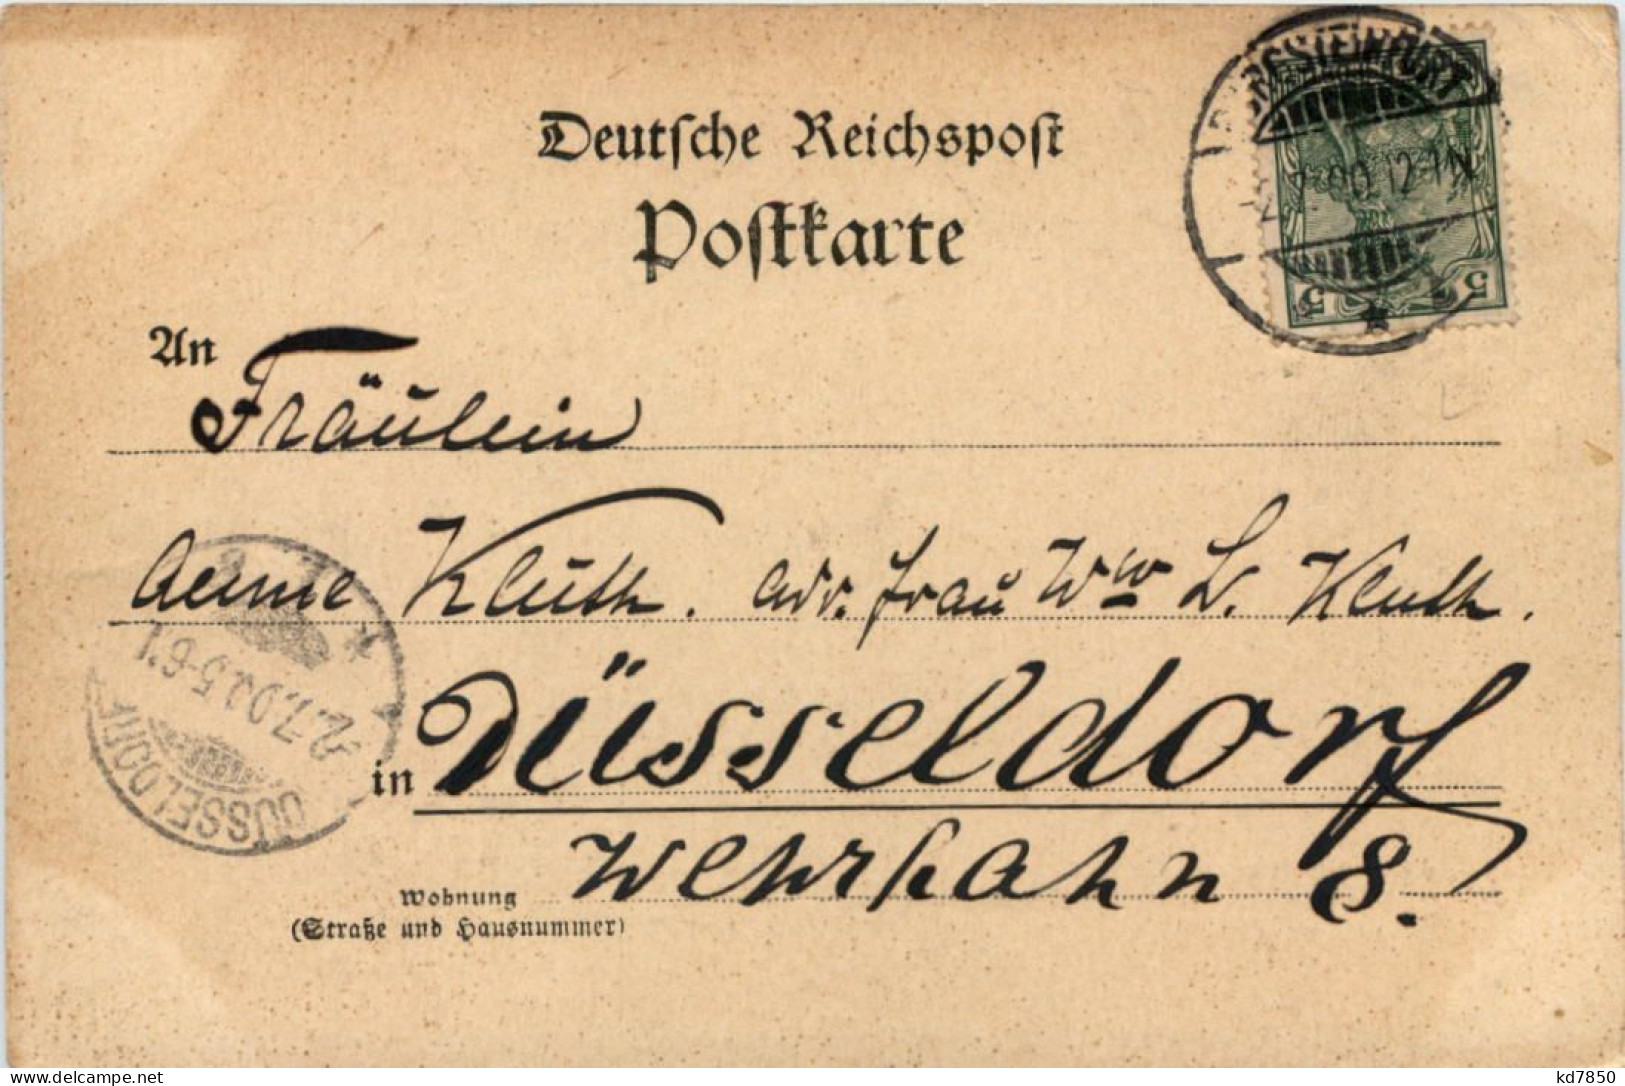 Deutsche Reichspost
Postkarte
BURGSTEINFURT
2.7.00.12-1N
5 5
An Fräulein
Aenne Kluth. adr. Frau Wwe L. Kluth.
in Düsseldorf
Wehrhahn 8.
Wohnung
(Straße und Hausnummer)
DÜSSELDORF
2.7.00.5-6
kd7850